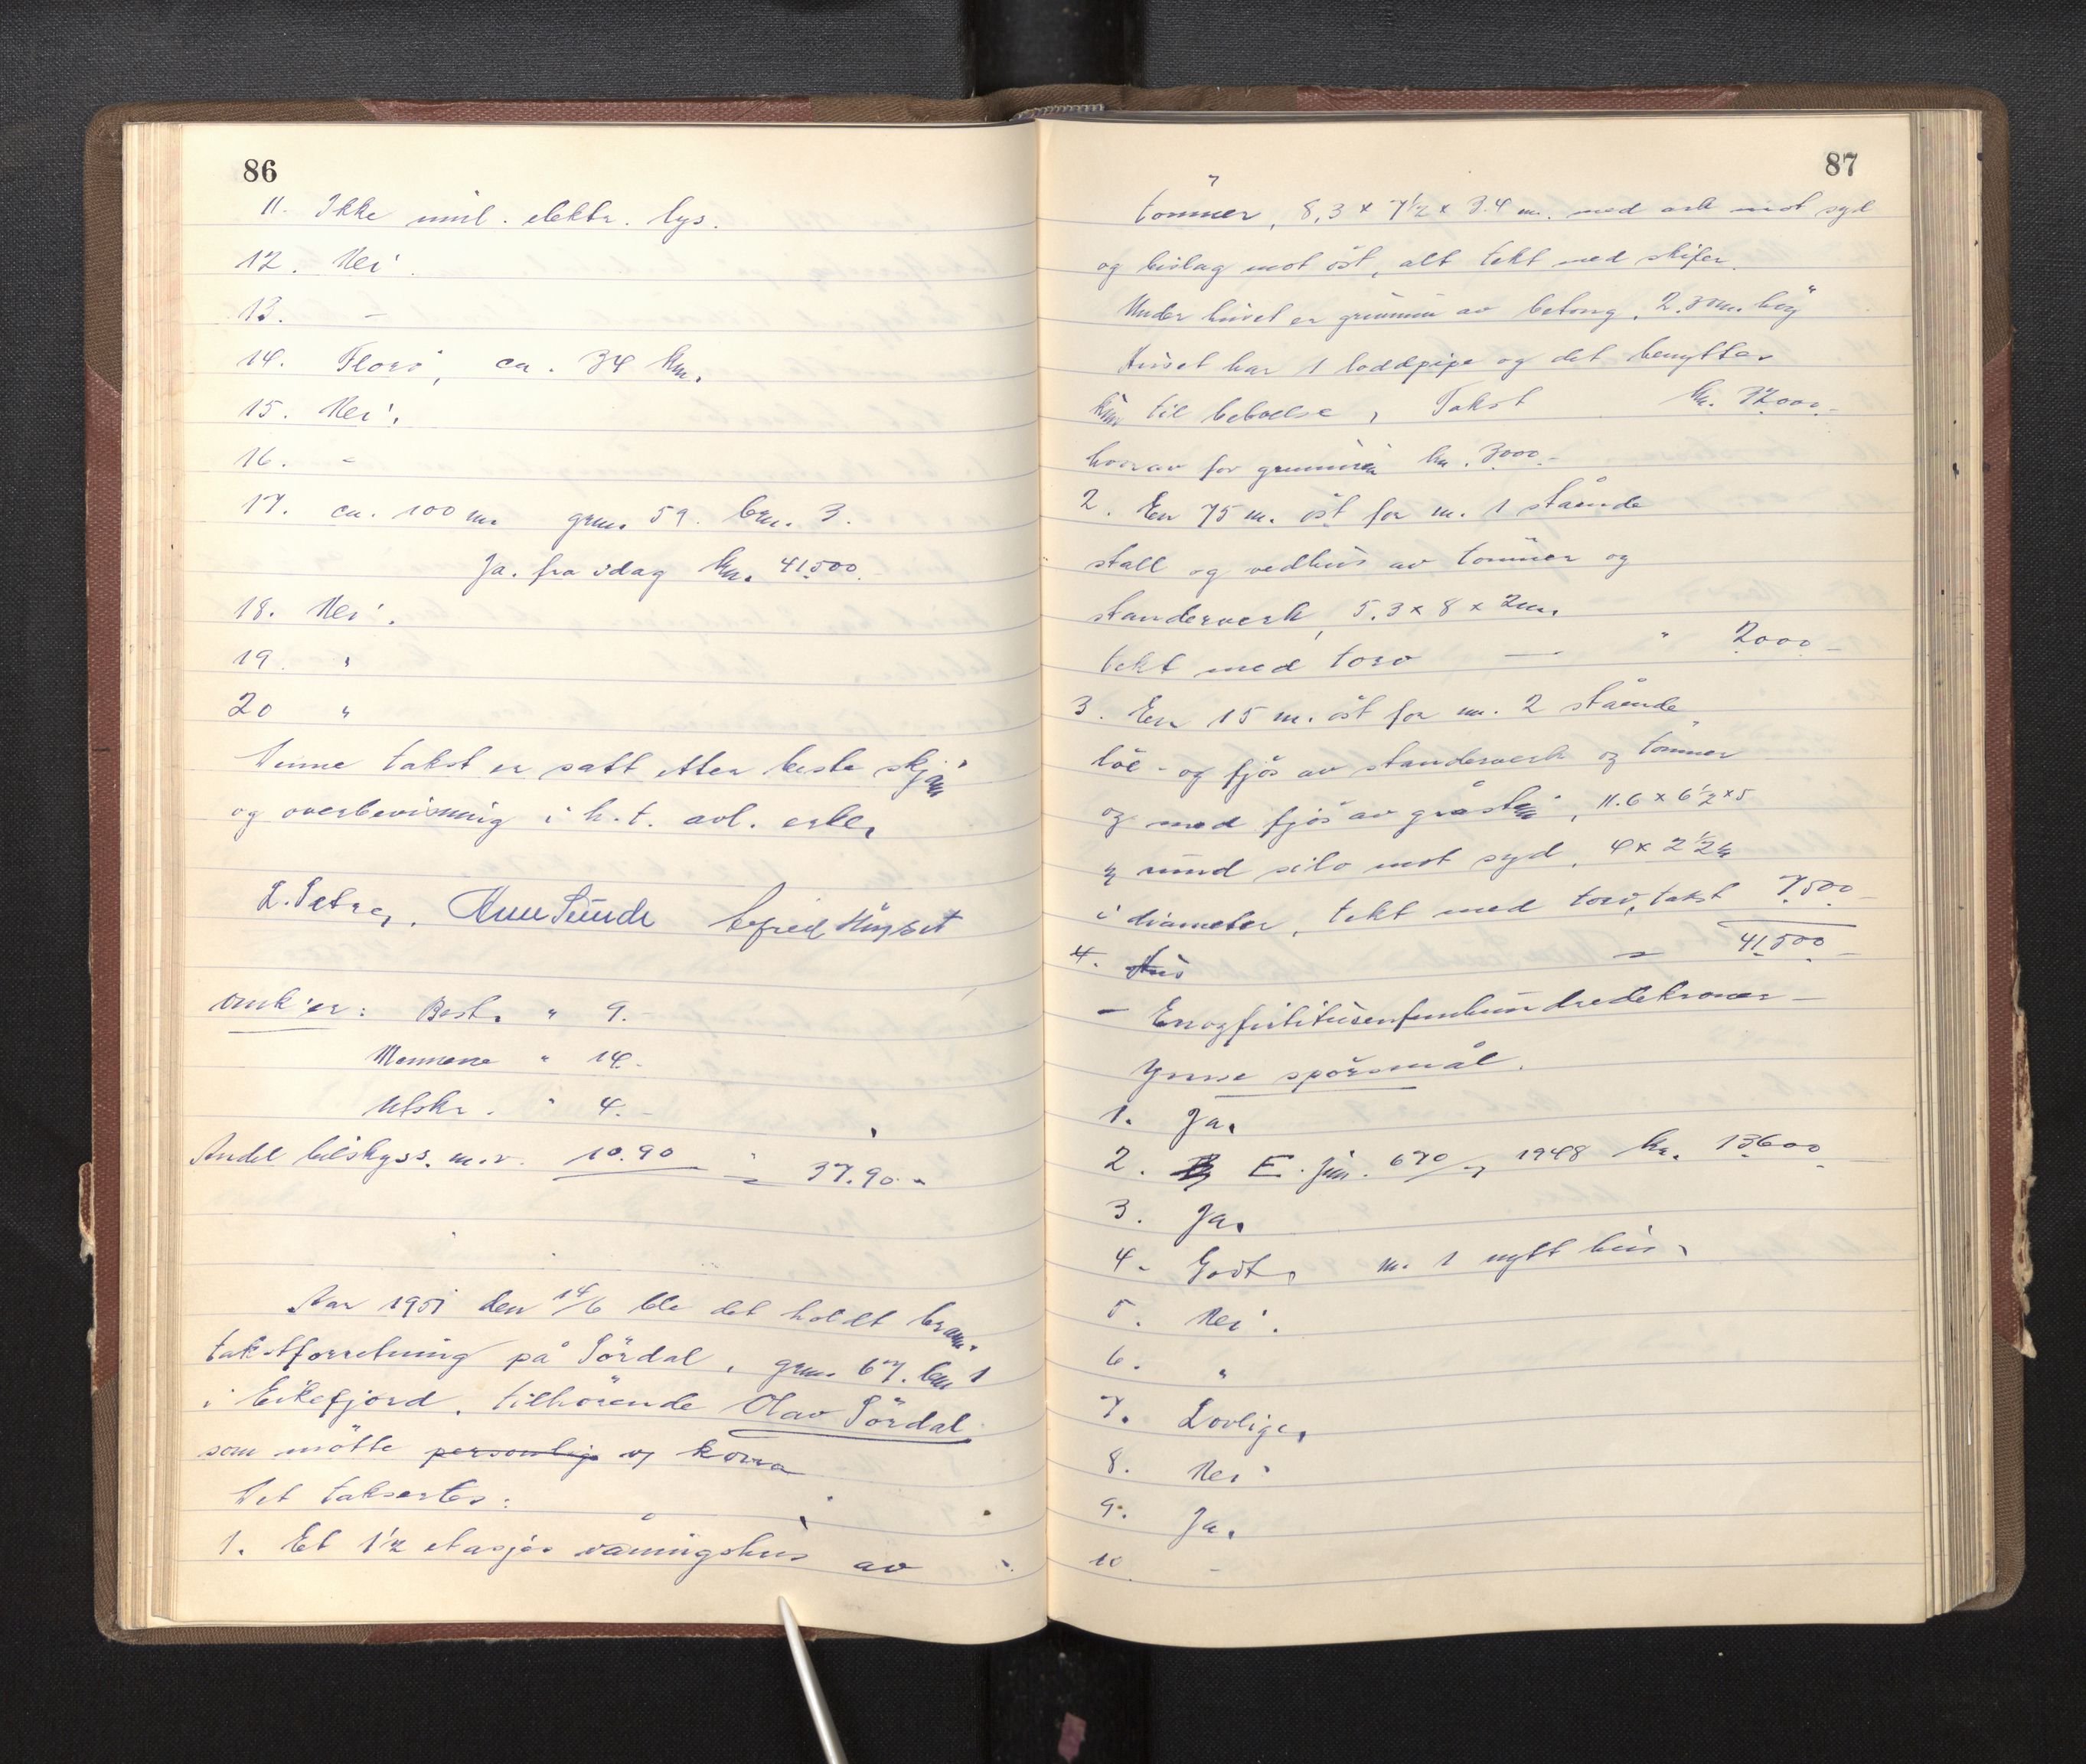 86
11. Ikke innl. elektr. lys.
12. Nei.
13. -
14. Florö, ca. 34 km.
15. Nei.
16. -
17. ca. 100 m. gnr. 59. bnr. 3.
Ja. fra idag kr. 41500
18. Nei.
19. "
20 "
Denne takst er satt etter beste skjön
og overbevisning i h.t. avl. erkl.
omk'er: Best. " 9.-
Mennene " 14.-
Utskr. " 4.-
Andel bilskyss. m.v. 10.90 = 37.90-
Aar 1951 den 14/6 ble det holdt brann-
takstforretning på Sördal, gnr. 67. bnr 1
i Eikefjord, tilhörende Olav Sördal
som mötte personlig og kona
Det taksertes:
1. Et 1½ etasjes våningshus av
87
tömmer, 8,3 x 7½ x 3.4 m. med ark mot syd
og bislag mot öst, alt tekt med skifer.
Under huset er grunnmur av betong, 2.30 m. höy
Huset har 1 loddpipe og det benyttes
kun til beboelse, Takst kr. 32000.-
herav for grunnmur kr. 3000.-
2. En 75 m. öst for nr. 1 stående
stall og vedhus av tömmer og
standerverk, 5.3 x 8 x 2 m.
tekt med torv — " 2000-
3. En 15 m. öst for nr. 2 stående
löe- og fjös av standerverk og tömmer
og med fjös av gråsten, 11.6 x 6½ x 5
og rund silo mot syd, 4 x 2½ m
i diameter, tekt med torv, takst 7.500-
4. Hus = 41500-
- Enogfirtitusenfemhundredekroner -
Ymse spörsmål.
1. Ja.
2. E. jnr. 670/ 1948 kr. 13600-
3. Ja.
4- Godt, nr. 1 nytt hus.
5. Nei.
6. "
7. Lovlige,
8. Nei
9. Ja.
10 -